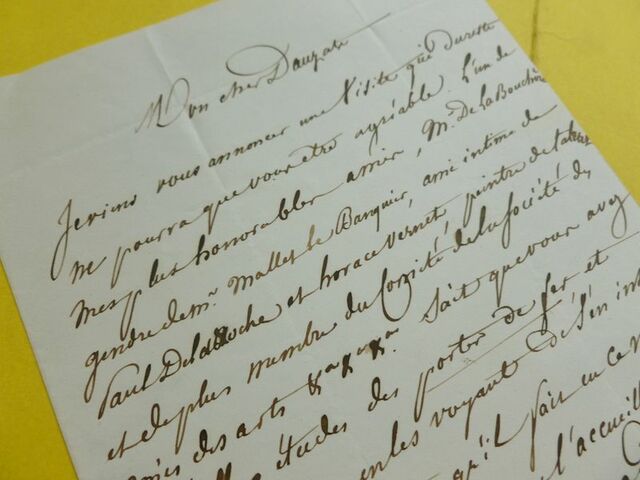 Mon cher Dauzats
Je viens vous annoncer une Visite qui du reste
ne pourra que vous être agréable. L'un de
mes plus honorables amis, Mr. De La Bouch
gendre de mr. Mallet le Banquier, ami intime de
Paul Delaroche et horace Vernet, peintre de talent
et de plus membre du Comité de la Société des
amis des arts &a &a &a. Sait que vous avez
études des portes de fer et
les voyant de s'en
qu'il fait en ce
l'accueil